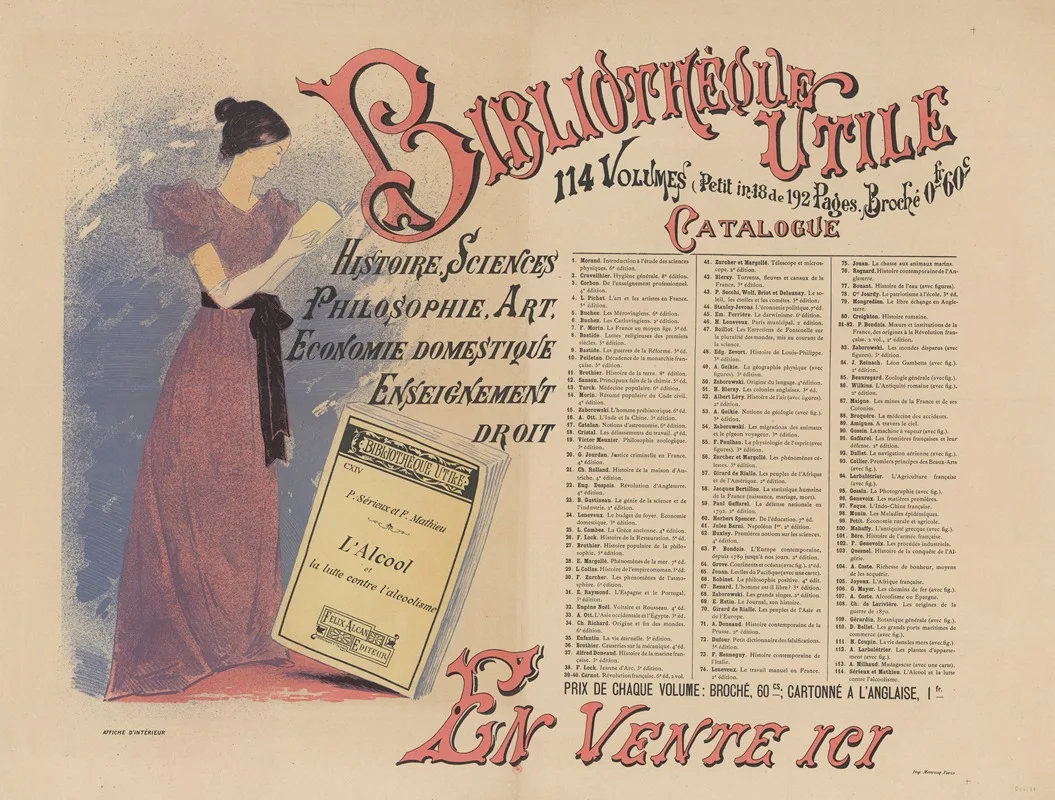 BIBLIOTHÈQUE
UTILE
114 VOLUMES (Petit in-18 de 192 Pages. Broché 0fr 60c
CATALOGUE
HISTOIRE, SCIENCES
PHILOSOPHIE, ART,
ECONOMIE DOMESTIQUE
ENSEIGNEMENT
DROIT
BIBLIOTHÈQUE UTILE
CXIV
P. Sérieux et F. Mathieu
L'Alcool
et
la lutte contre l'alcoolisme
FELIX ALCAN
EDITEUR
1. Morand. Introduction à l'étude des sciences
physiques. 6e édition.
2. Cruveilhier. Hygiène générale. 8e édition.
3. Corbon. De l'enseignement professionnel.
4e édition.
4. L. Pichat. L'art et les artistes en France.
5e édition.
5. Buchez. Les Mérovingiens. 6e édition.
6. Buchez. Les Carlovingiens. 2e édition.
7. F. Morin. La France au moyen âge. 5e éd.
8. Bastide. Luttes religieuses des premiers
siècles. 5e édition.
9. Bastide. Les guerres de la Réforme. 5e éd.
10. Pelletan. Décadence de la monarchie fran-
çaise. 5e édition.
11. Brothier. Histoire de la terre. 8e édition.
12. Sanson. Principaux faits de la chimie. 5e éd.
13. Turck. Médecine populaire. 6e édition.
14. Morin. Résumé populaire du Code civil.
4e édition.
15. Zaborowski. L'homme préhistorique. 6e éd.
16. A. Ott. L'Inde et la Chine. 3e édition.
17. Catalan. Notions d'astronomie. 6e édition.
18. Cristal. Les délassements du travail. 4e éd.
19. Victor Meunier. Philosophie zoologique.
3e édition.
20. G. Jourdan. Justice criminelle en France.
4e édition.
21. Ch. Rolland. Histoire de la maison d'Au-
triche. 4e édition.
22. Eug. Despois. Révolution d'Angleterre.
4e édition.
23. B. Gastineau. Le génie de la science et de
l'Industrie. 2e édition.
24. Leneveux. Le budget du foyer. Economie
domestique. 3e édition.
25. L. Combes. La Grèce ancienne. 4e édition.
26. F. Lock. Histoire de la Restauration. 5e éd.
27. Brothier. Histoire populaire de la philo-
sophie. 3e édition.
28. E. Margollé. Phénomènes de la mer. 7e éd.
29. L. Collas. Histoire de l'empire ottoman. 3e éd.
30. F. Zurcher. Les phénomènes de l'atmo-
sphère. 6e édition.
31. E. Raymond. L'Espagne et le Portugal.
3e édition.
32. Eugène Noël. Voltaire et Rousseau. 4e éd.
33. A. Ott. L'Asie occidentale et l'Egypte. 3e éd.
34. Ch. Richard. Origine et fin des mondes.
6e édition.
35. Enfantin. La vie éternelle. 5e édition.
36. Brothier. Causeries sur la mécanique. 4e éd.
37. Alfred Doneaud. Histoire de la marine fran-
çaise. 3e édition.
38. F. Lock. Jeanne d'Arc. 3e édition.
39-40. Carnot. Révolution française. 6e éd. 2 vol.
41. Zurcher et Margollé. Télescope et micros-
cope. 2e édition.
42. Blerzy. Torrents, fleuves et canaux de la
France. 3e édition.
43. P. Secchi, Wolf, Briot et Delaunay. Le so-
leil, les étoiles et les comètes. 5e édition.
44. Stanley-Jevons. L'économie politique. 7e éd.
45. Em. Ferrière. Le darwinisme. 6e édition.
46. H. Leneveux. Paris municipal. 2e édition.
47. Boillot. Les Entretiens de Fontenelle sur
la pluralité des mondes, mis au courant de
la science.
48. Edg. Zevort. Histoire de Louis-Philippe.
3e édition.
49. A. Geikie. La géographie physique (avec
figures). 3e édition.
50. Zaborowski. Origine du langage. 4e édition.
51. H. Blerzy. Les colonies anglaises. 3e éd.
52. Albert Lévy. Histoire de l'air (avec figures).
2e édition.
53. A. Geikie. Notions de géologie (avec fig.).
3e édition.
54. Zaborowski. Les migrations des animaux
et le pigeon voyageur. 3e édition.
55. F. Paulhan. La physiologie de l'esprit (avec
figures). 3e édition.
56. Zurcher et Margollé. Les phénomènes cé-
lestes. 3e édition.
57. Girard de Rialle. Les peuples de l'Afrique
et de l'Amérique. 2e édition.
58. Jacques Bertillon. La statistique humaine
de la France (naissance, mariage, mort).
59. Paul Gaffarel. La défense nationale en
1792. 2e édition.
60. Herbert Spencer. De l'éducation. 7e éd.
61. Jules Barni. Napoléon Ier. 2e édition.
62. Huxley. Premières notions sur les sciences.
4e édition.
63. P. Bondois. L'Europe contemporaine,
depuis 1789 jusqu'à nos jours. 2e édition.
64. Grove. Continents et océans (avec fig.). 2e éd.
65. Jouan. Les îles du Pacifique (avec une carte).
66. Robinet. La philosophie positive. 4e édit.
67. Renard. L'homme est-il libre? 3e édition.
68. Zaborowski. Les grands singes. 2e édition.
69. E. Hatin. Le Journal, son histoire.
70. Girard de Rialle. Les peuples de l'Asie et
de l'Europe.
71. A. Doneaud. Histoire contemporaine de la
Prusse. 2e édition.
72. Dufour. Petit dictionnaire des falsifications.
3e édition.
73. F. Henneguy. Histoire contemporaine de
l'Italie.
74. Leneveux. Le travail manuel en France.
2e édition.
75. Jouan. La chasse aux animaux marins.
76. Regnard. Histoire contemporaine de l'An-
gleterre.
77. Bouant. Histoire de l'eau (avec figures).
78. Cel Jourdy. Le patriotisme à l'école. 3e éd.
79. Mongredien. Le libre échange en Angle-
terre.
80. Creighton. Histoire romaine.
81-82. P. Bondois. Mœurs et institutions de la
France, des origines à la Révolution fran-
çaise. 2 vol., 2e édition.
83. Zaborowski. Les mondes disparus (avec
figures). 3e édition.
84. J. Reinach. Léon Gambetta (avec fig.).
2e édition.
85. Beauregard. Zoologie générale (avec fig.).
86. Wilkins. L'Antiquité romaine (avec fig.).
2e édition.
87. Maigne. Les mines de la France et de ses
Colonies.
88. Broquère. La médecine des accidents.
89. Amigues. A travers le ciel.
90. Gossin. La machine à vapeur (avec fig.).
91. Gaffarel. Les frontières françaises et leur
défense. 2e édition.
92. Dallet. La navigation aérienne (avec fig.).
93. Collier. Premiers principes des Beaux-Arts
(avec fig.).
94. Larbalétrier. L'Agriculture française
(avec fig.).
95. Gossin. La Photographie (avec fig.).
96. Genevoix. Les matières premières.
97. Faque. L'Indo-Chine française.
98. Monin. Les Maladies épidémiques.
99. Petit. Economie rurale et agricole.
100. Mahaffy. L'antiquité grecque (avec fig.).
101. Bère. Histoire de l'armée française.
102. F. Genevoix. Les procédés industriels.
103. Quesnel. Histoire de la conquête de l'Al-
gérie.
104. A. Coste. Richesse de bonheur, moyens
de les acquérir.
105. Joyeux. L'Afrique française.
106. G. Mayer. Les chemins de fer (avec fig.).
107. A. Coste. Alcoolisme ou Epargne.
108. Ch. de Larivière. Les origines de la
guerre de 1870.
109. Gérardin. Botanique générale (avec fig.).
110. D. Bellet. Les grands ports maritimes de
commerce (avec fig.).
111. H. Coupin. La vie dans les mers (avec fig.).
112. A. Larbalétrier. Les plantes d'apparte-
ment (avec fig.).
113. A. Milhaud. Madagascar (avec une carte).
114. Sérieux et Mathieu. L'Alcool et la lutte
contre l'alcoolisme.
PRIX DE CHAQUE VOLUME: BROCHÉ, 60 cs; CARTONNÉ A L'ANGLAISE, 1 fr.
EN VENTE ICI
AFFICHE D'INTÉRIEUR
Imp. Monrocq, Paris